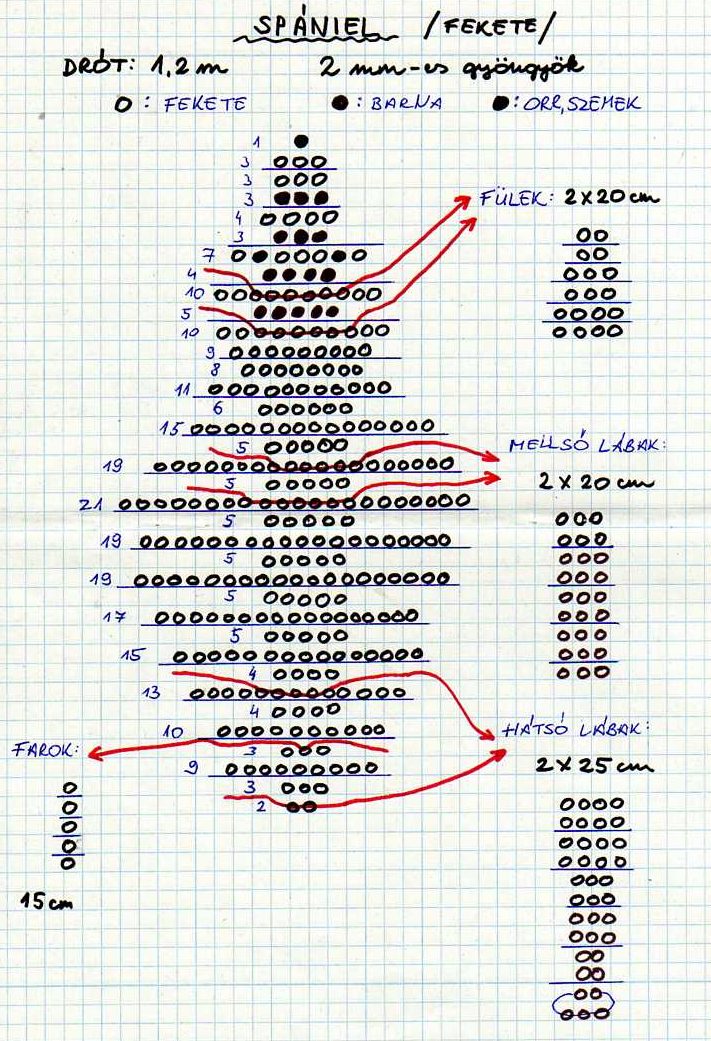 SPÁNIEL /FEKETE/
DRÓT: 1,2 m 2 mm-es gyöngyök
: FEKETE : BARNA : ORR, SZEMEK
1
3
3
3
FÜLEK: 2 x 20 cm
4
3
7
4
10
5
10
9
8
11
6
15
5
MELLSŐ LÁBAK:
19
5
2 x 20 cm
21
5
19
5
19
5
17
5
15
4
13
4
10
HÁTSÓ LÁBAK:
FAROK:
3
9
2 x 25 cm
3
2
15 cm